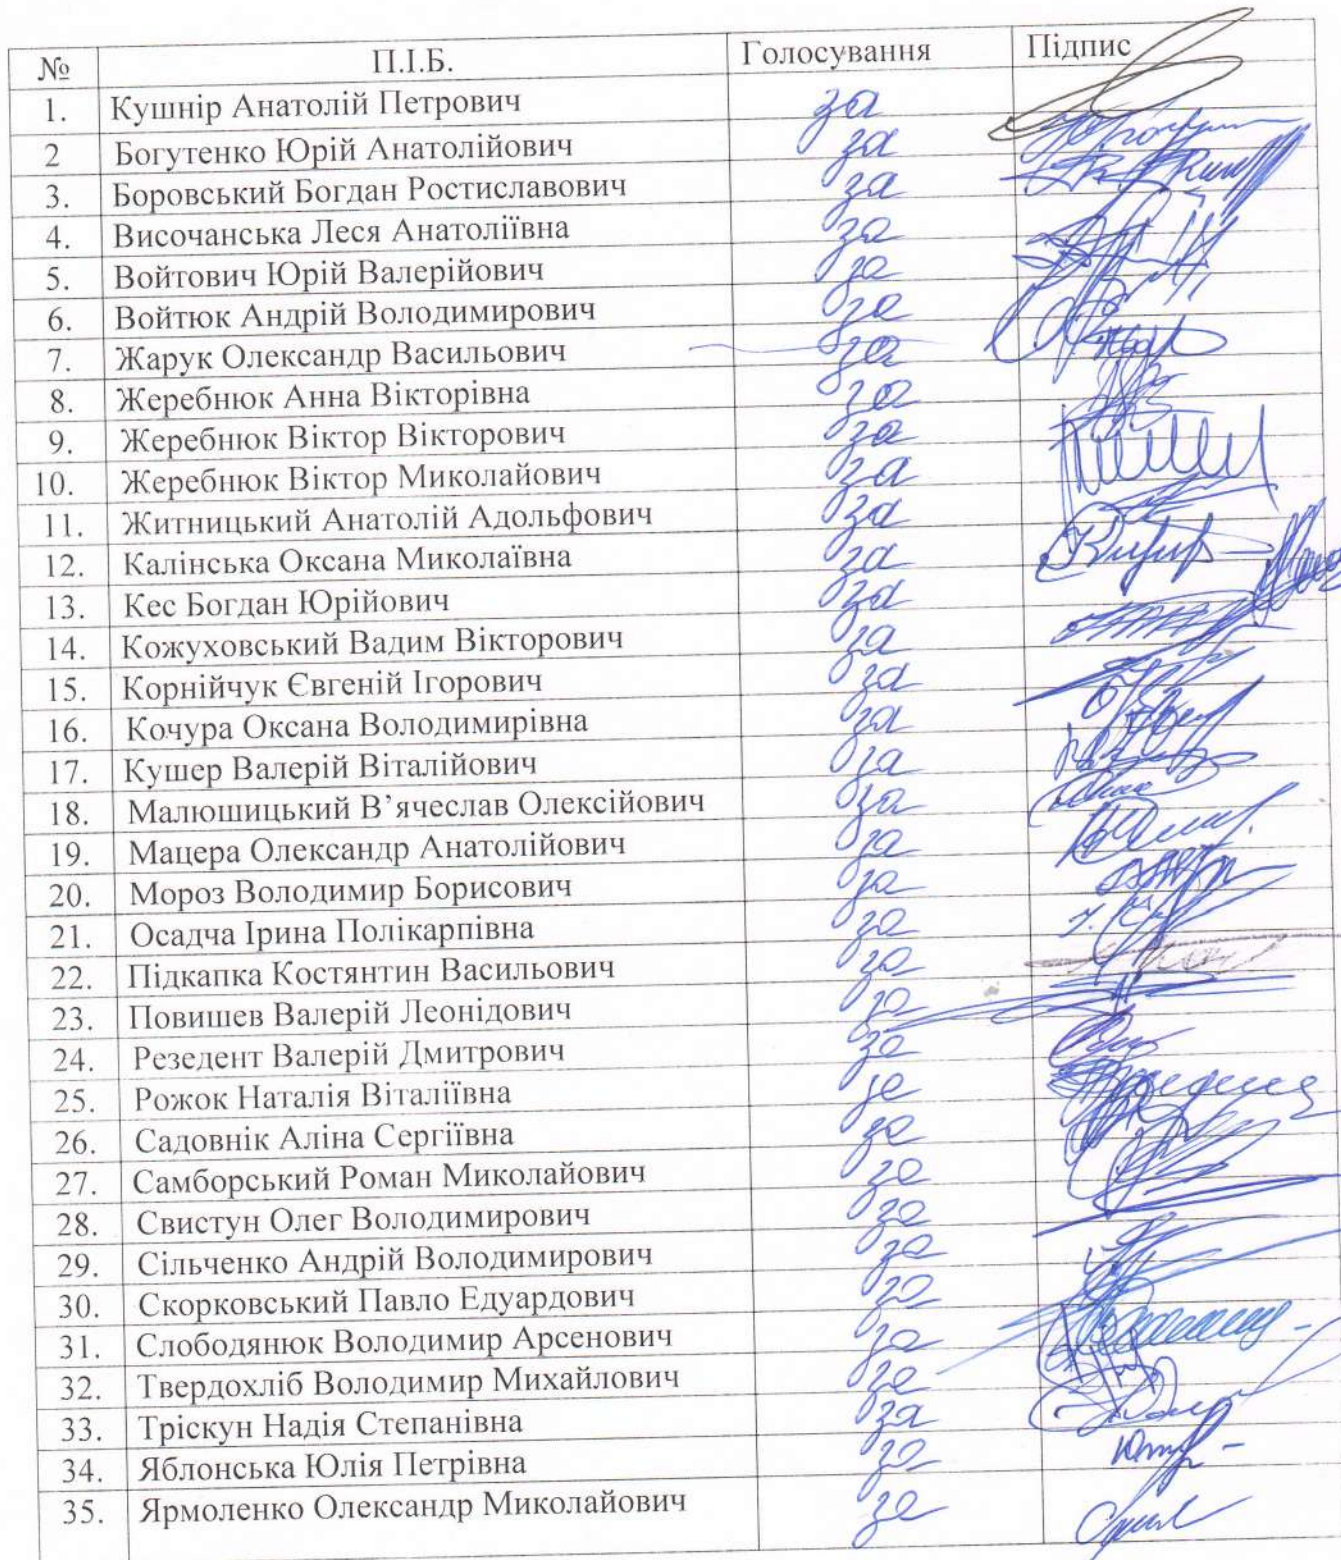 № П.І.Б. Голосування Підпис
1. Кушнір Анатолій Петрович за
2 Богутенко Юрій Анатолійович за
3. Боровський Богдан Ростиславович за
4. Височанська Леся Анатоліївна за
5. Войтович Юрій Валерійович за
6. Войтюк Андрій Володимирович за
7. Жарук Олександр Васильович за
8. Жеребнюк Анна Вікторівна за
9. Жеребнюк Віктор Вікторович за
10. Жеребнюк Віктор Миколайович за
11. Житницький Анатолій Адольфович за
12. Калінська Оксана Миколаївна за
13. Кес Богдан Юрійович за
14. Кожуховський Вадим Вікторович за
15. Корнійчук Євгеній Ігорович за
16. Кочура Оксана Володимирівна за
17. Кушер Валерій Віталійович за
18. Малюшицький В’ячеслав Олексійович за
19. Мацера Олександр Анатолійович за
20. Мороз Володимир Борисович за
21. Осадча Ірина Полікарпівна за
22. Підкапка Костянтин Васильович за
23. Повишев Валерій Леонідович за
24. Резедент Валерій Дмитрович за
25. Рожок Наталія Віталіївна за
26. Садовнік Аліна Сергіївна за
27. Самборський Роман Миколайович за
28. Свистун Олег Володимирович за
29. Сільченко Андрій Володимирович за
30. Скорковський Павло Едуардович за
31. Слободянюк Володимир Арсенович за
32. Твердохліб Володимир Михайлович за
33. Тріскун Надія Степанівна за
34. Яблонська Юлія Петрівна за
35. Ярмоленко Олександр Миколайович за